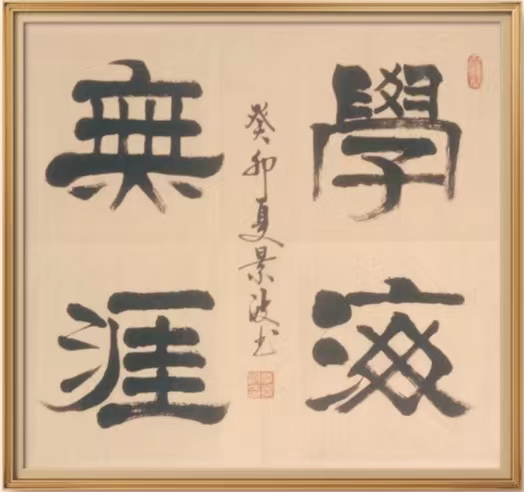 學海
無涯
癸卯夏景波书